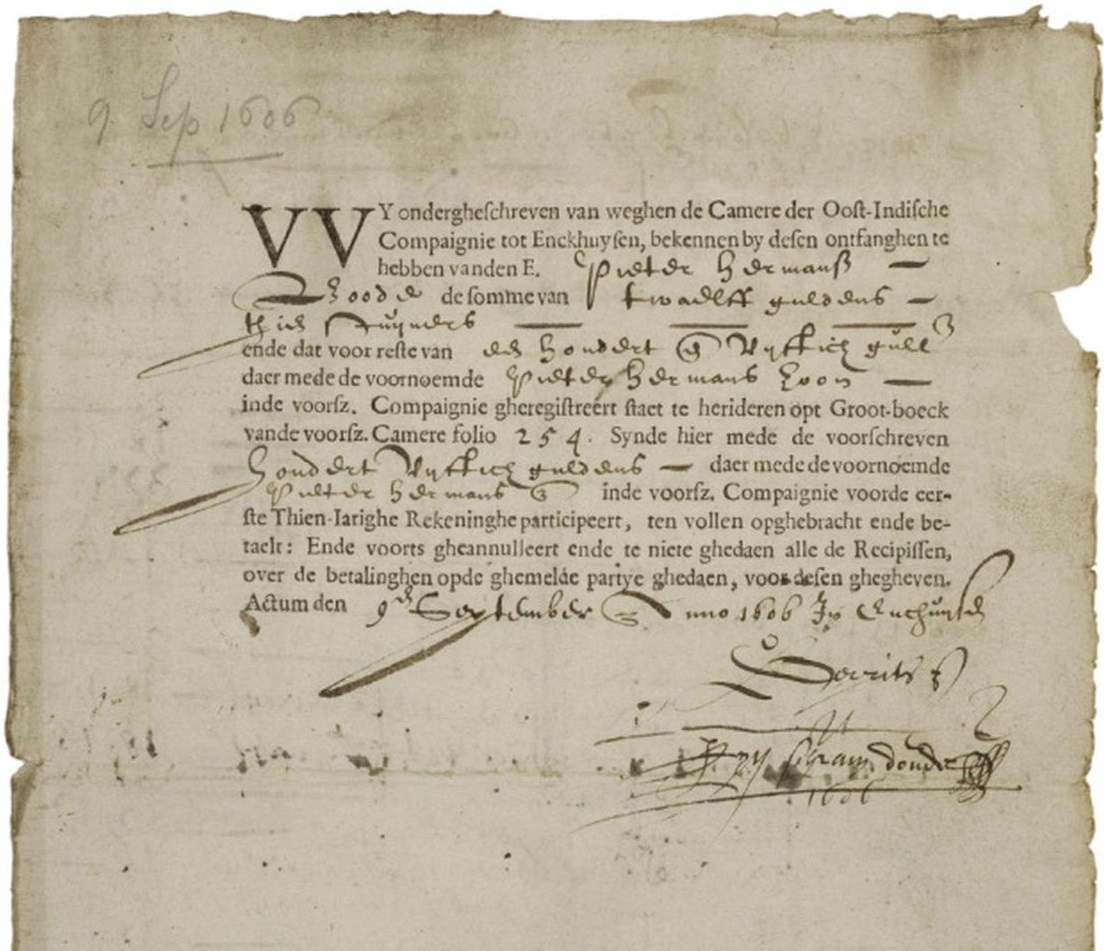 9 Sep 1606
VVY ondergheschreven van weghen de Camere der Oost-Indische
Compaignie tot Enckhuysen, bekennen by desen ontfanghen te
hebben vanden E. Pieter Hermansz
de somme van twaelff guldens
thien stuyvers
ende dat voor reste van een hondert vyftich gull
daer mede de voornoemde Pieter Hermans zoon
inde voorsz. Compaignie gheregistreert staet te herideren opt Groot-boeck
vande voorsz. Camere folio 254. Synde hier mede de voorschreven
hondert vyftich guldens daer mede de voornoemde
Pieter Hermans inde voorsz. Compaignie voorde eer-
ste Thien-Iarighe Rekeninghe participeert, ten vollen opghebracht ende be-
taelt: Ende voorts gheannulleert ende te niete ghedaen alle de Recipissen,
over de betalinghen opde ghemelde partye ghedaen, voor desen ghegheven.
Actum den 9en September Anno 1606 In Enchuysen
Gerritsz
1606